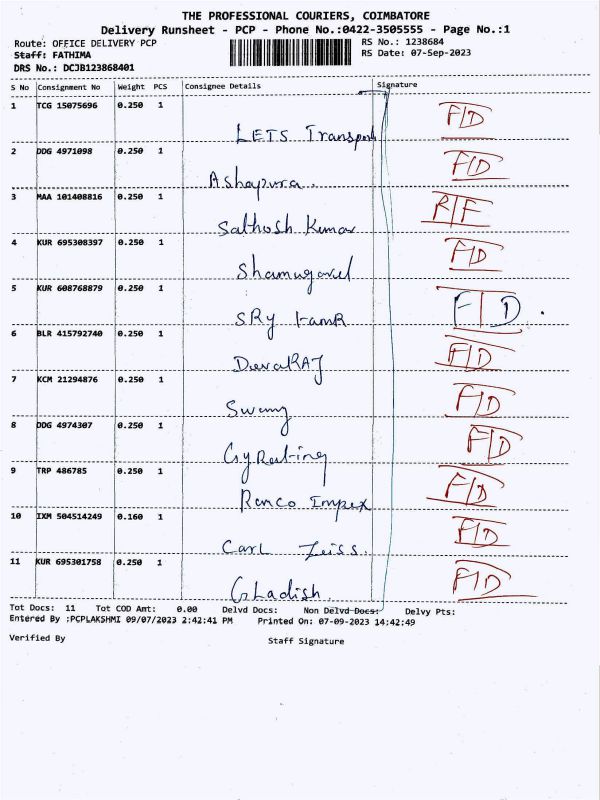 THE PROFESSIONAL COURIERS, COIMBATORE
Delivery Runsheet - PCP - Phone No.:0422-3505555 - Page No.:1
Route: OFFICE DELIVERY PCP RS No.: 1238684
Staff: FATHIMA RS Date: 07-Sep-2023
DRS No.: DCJB123868401
S No Consignment No Weight PCS Consignee Details Signature
1 TCG 15075696 0.250 1 F/D
LETS Transport
2 DDG 4971098 0.250 1 F/D
Ashapura.
3 MAA 101408816 0.250 1 R/F
Sathosh Kumar
4 KUR 695308397 0.250 1 F/D
Shamugavel
5 KUR 608768879 0.250 1 F/D.
SRy
6 BLR 415792740 0.250 1 F/D
DevaRAJ
7 KCM 21294876 0.250 1 F/D
Swamy
8 DDG 4974307 0.250 1 F/D
9 TRP 486785 0.250 1 F/D
Ranco Impex
10 IXM 504514249 0.160 1 F/D
Carl Zeiss.
11 KUR 695301758 0.250 1 F/D
Gladish.
Tot Docs: 11 Tot COD Amt: 0.00 Delvd Docs: Non Delvd Docs: Delvy Pts:
Entered By :PCPLAKSHMI 09/07/2023 2:42:41 PM Printed On: 07-09-2023 14:42:49
Verified By Staff Signature